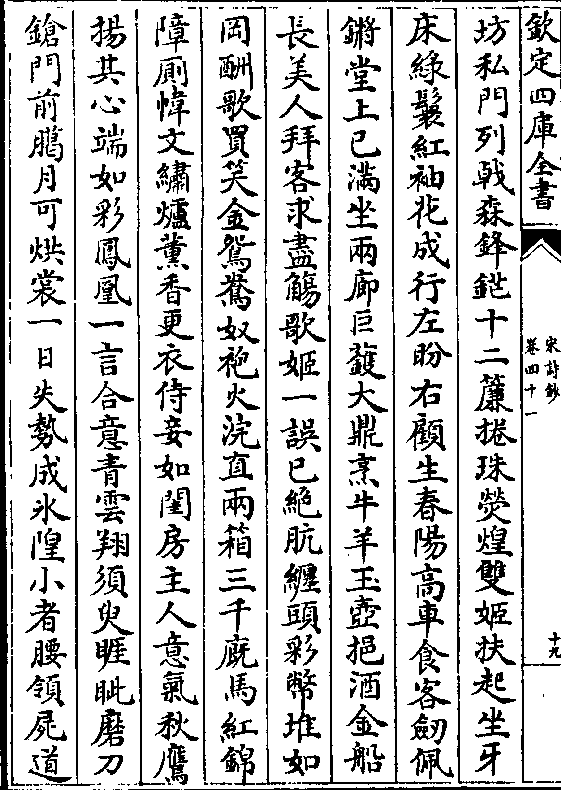 欽定四庫全書
宋詩鈔
卷四十一
十九
坊私門列戟森鋒鋩十二簾捲珠熒煌雙姬扶起坐牙
床綠鬟紅袖花成行左盼右顧生春陽高車食客劒佩
鏘堂上已滿坐兩廊巨鑊大鼎烹牛羊玉壺挹酒金船
長美人拜客求盡觴歌姬一誤已絶肮纒頭彩幣堆如
岡酬歌買笑金鴛鴦奴袍火浣直兩箱三千廐馬紅錦
障厠幃文繡爐薰香更衣侍妾如閨房主人意氣秋鷹
揚其心端如彩鳳凰一言合意青雲翔須臾睚眦磨刀
鎗門前鵰月可烘裳一日失勢成氷隍小者腰領屍道